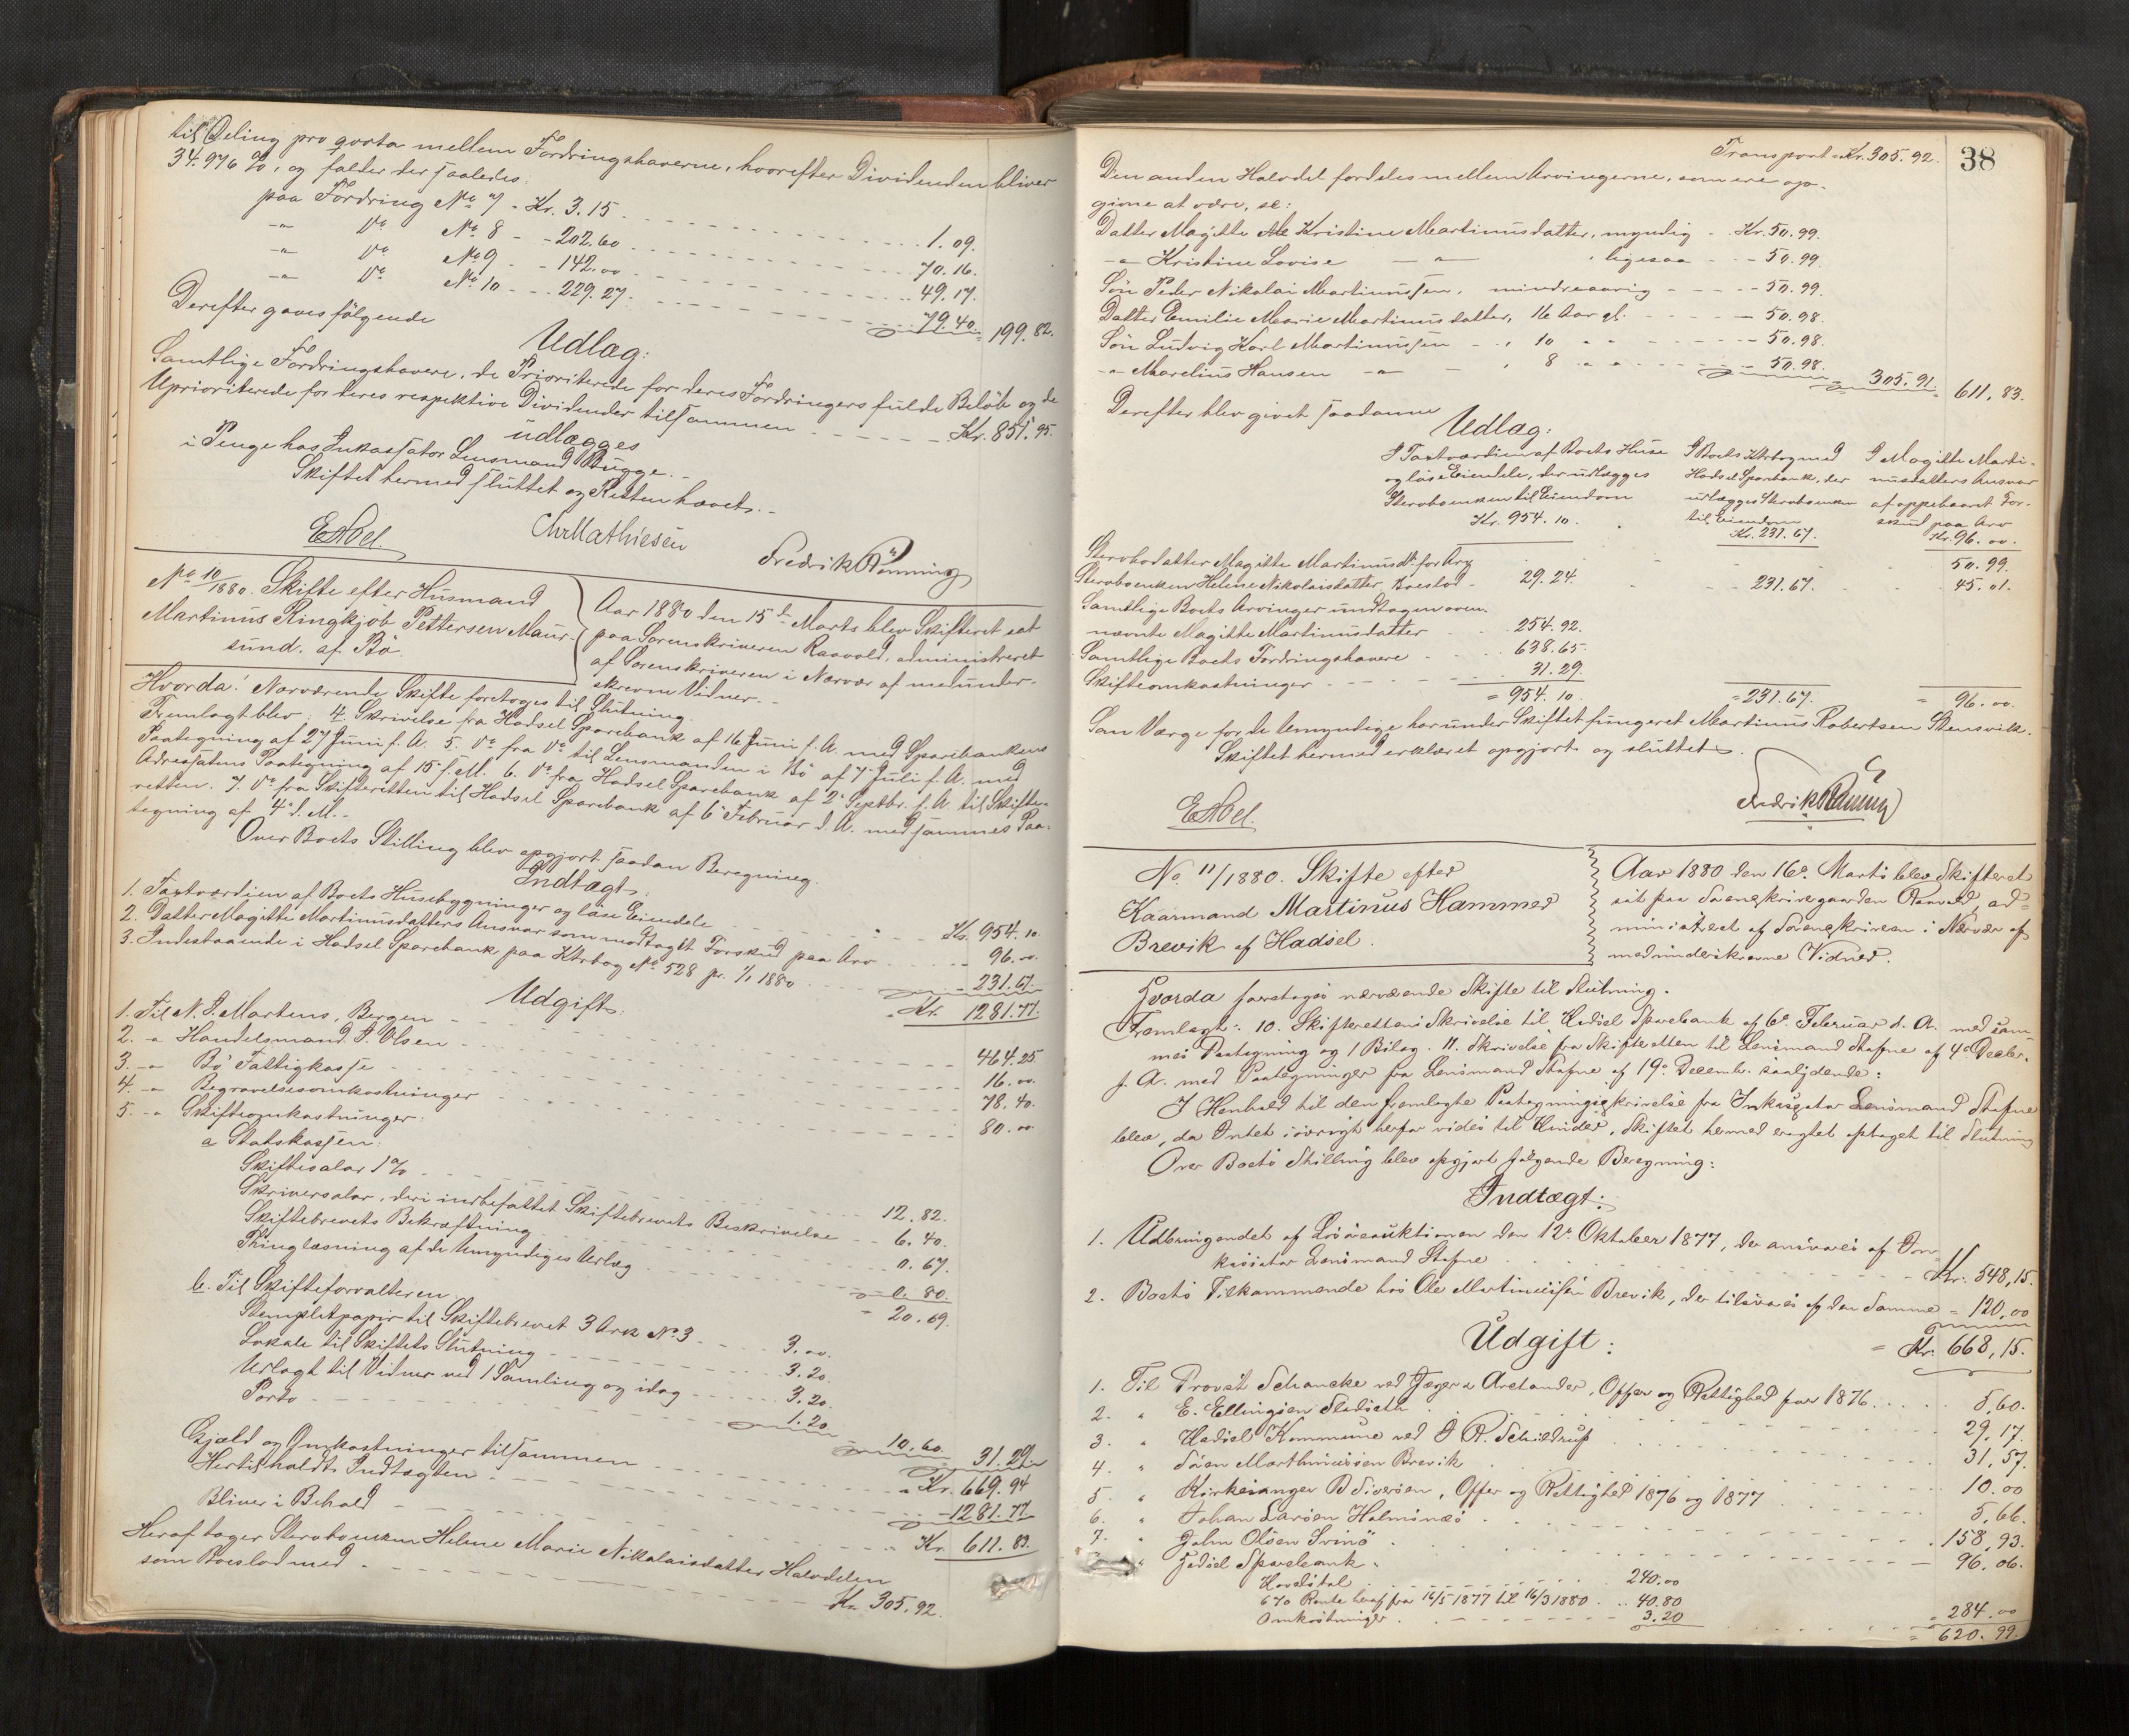 til Deling pro qvota mellem Fordringshaverne, hvorefter Dividenden bliver
34.976 %, og falder der saaledes:
paa Fordring No 7 - Kr. 3.15 1.09.
-"- Do No 8 - - 202.60 70.16.
-"- Do No 9 - - 142.00 49.17.
-"- Do No 10 - - 229.27. 79.40 = 199.82.
Derefter gaves følgende
Udlæg:
Samtlige Fordringshavere, de Prioriterede for deres Fordringers fulde Beløb og de
Uprioriterede for deres respektive Dividender tilsammen Kr. 851.95.
udlægges
i Penge hos Inkassator Lensmand Bugge.
Skiftet hermed sluttet og Retten hævet.
E Abel. Chr Mathiesen Fredrik Rønning
No 10/1880. Skifte efter Husmand
Martinus Ringkjøb Pettersen Maur-
sund. af Bø.
Aar 1880 den 15de Marts blev Skifteret sat
paa Sorenskriveren Raavold, administreret
af Sorenskriveren i Nærvær af medunder-
skrevne Vidner.
Hvorda! Nærværende Skifte foretoges til Slutning.
Fremlagt blev: 4. Skrivelse fra Hadsel Sparebank af 16 Juni f. A. med Sparebankens
Paategning af 27 Juni f. A. 5. Do fra Do til Lensmanden i Bø af 7 Juli f. A. med
Adressatens Paategning af 15 s. M. 6. Do fra Hadsel Sparebank af 2 Septbr. f. A. til Skifte-
retten. 7. Do fra Skifteretten til Hadsel Sparebank af 6 Februar d. A. med sammes Paa-
tegning af 4 d. M.
Over Boets Stilling blev opgjort saadan Beregning.
Indtægt:
1. Taxtværdien af Boets Husebygninger og løse Eiendele Kr. 954.10
2. Datter Magitte Martinusdatters Ansvar som modtaget Forskud paa Arv 96.00.
3. Indestaaende i Hadsel Sparebank paa Ktrbog No 528 pr. 1/1 1880 - 231.67.
Kr. 1281.77.
Udgift:
1. Til N. P. Martens, Bergen 464.25
2. -"- Handelsmand P. Olsen 16.00.
3. -"- Bø Fattigkasse 78.40.
4. -"- Begravelsesomkostninger 80.00
5. -"- Skifteomkostninger.
a Statskassen.
Skiftesalar 1 % 12.82.
Skriversalar, deri indbefattet Skiftebrevets Beskrivelse 6.40.
Skiftebrevets Bekræftning 0.67.
Thinglæsning af de Umyndiges Udlæg 0.80.
= 20.69.
b. Til Skifteforvalteren
Stemplet papir til Skiftebrevet 3 Ark No 3 3.00.
Lokale til Skiftets Slutning 3.20.
Udlagt til Vidner ved 1 Samling og idag 3.20.
Porto 1.20.
10.60. 31.29.
Gjæld og Omkostninger tilsammen Kr. 669.94
Hertil holdt Indtægten 1281.77
Bliver i Behold Kr. 611.83.
Heraf tager Stervboenken Helene Marie Nikolaisdatter Halvdelen
som Boeslod med Kr 305.92.
38
Transport Kr. 305.92.
Den anden Halvdel fordeles mellem Arvingerne, som ere op-
givne at være, se:
Datter Magitte Kristine Martinusdatter, myndig Kr. 50.99.
-"- Kristine Lovise -"- , ligesaa 50.99.
Søn Peder Nikolai Martinussen, mindreaarig 50.99.
Datter Emilie Marie Martinusdatter, 16 Aar gl. 50.98.
Søn Ludvig Karl Martinussen - , 10 " " 50.98.
-"- Marelius Hansen -"- , 8 " " 50.98.
= 305.91. 611,83.
Derefter blev givet saadanne
Udlæg:
I Taxtværdien af Boets Huse
og løse Eiendele, der udlægges
Stervboenken til Eiendom
Kr. 954.10.
I Boets Ktrbog med
Hadsel Sparebank, der
udlægges Stervboenken
til Eiendom
Kr. 231.67.
I Magitte Marti-
nusdatters Ansvar
af oppebaaret For-
skud paa Arv
Kr. 96.00.
Stervbodatter Magitte Martinusdr. for Arv 50.99.
Stervboenken Helene Nikolaisdatter, Boeslod 29.24. 231.67. 45.01.
Samtlige Boets Arvinger undtagen oven-
nævnte Magitte Martinusdatter 254.92.
Samtlige Boets Fordringshavere 638.65.
Skifteomkostninger 31.29
= 954.10. = 231.67. = 96.00.
Som Værge for de Umyndige har under Skiftet fungeret Martinus Robertsen Steinsvik.
Skiftet hermed erklæret opgjort og sluttet.
E Abel. Fredrik Rønning
No. 11/1880. Skifte efter
Kaarmand Martinus Hammer
Brevik af Hadsel.
Aar 1880 den 16de Marts blev Skifteret
sat paa Sorenskrivergaarden Raavold, ad-
ministreret af Sorenskriveren i Nærvær af
medunderskrevne Vidner.
Hvorda foretoges nærværende Skifte til Slutning.
Fremlagt: 10. Skifterettens Skrivelse til Hadsel Sparebank af 6te Februar d. A. med sam-
mes Paategning og 1 Bilag. 11. Skrivelse fra Skifteretten til Lensmand Stafne af 4de Decbr.
f. A. med Paategninger fra Lensmand Stafne af 19de Decemb. saalydende:
I Henhold til den fremlagte Paategningsskrivelse fra Inkassator Lensmand Stafne
blev, da Intet iøvrigt herfor vides til Hinder, Skiftet hermed eragtet optaget til Slutning
Over Boets Stilling blev opgjort følgende Beregning:
Indtægt:
1. Udbringendet af Løsøreauktionen den 12te Oktober 1877, der ansvares af In-
kassator Lensmand Stafne Kr. 548,15.
2. Boets Tilkommende hos Ole Martinussen Brevik, der tilsvares af den Samme = 120,00
= Kr. 668,15.
Udgift:
1. Til Provst Schancke ved Jæger & Arctander, Offer og Rettighed for 1876 5,60.
2. " E. Ellingsen 29,17.
3. " Hadsel Kommune ved J. R. Schildrup 31,57.
4. " Søren Marthinussen Brevik 10.00
5. " Kirkesanger B Siversen, Offer og Rettighed 1876 og 1877 5,66.
6. " Johan Larsen Holmsnæs 158,93.
7. " John Olsen Svinø 96,06.
" Hadsel Sparebank.
Hovedstol 240.00
6 % Rente heraf fra 16/5 1877 til 16/3 1880 40.80
Omkostninger 3.20
= 284.00
= 620.99.